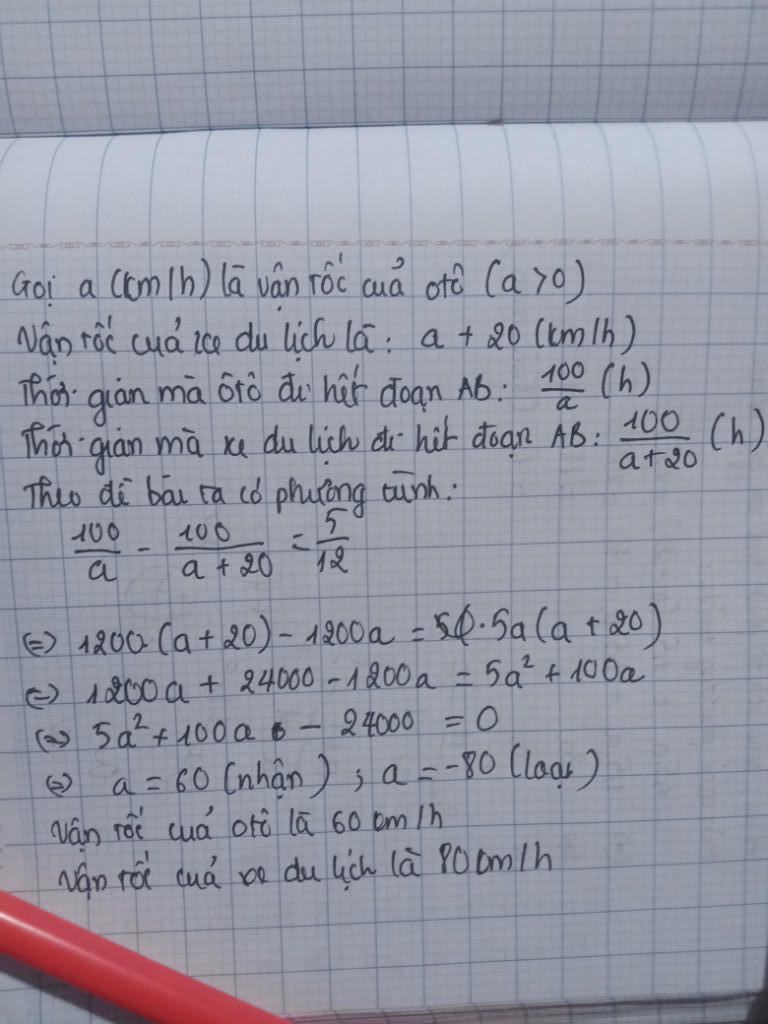 Gọi a (km/h) là vận tốc của otô (a > 0)
Vận tốc của xe du lịch là: a + 20 (km/h)
Thời gian mà ôtô đi hết đoạn AB: 100/a (h)
Thời gian mà xe du lịch đi hết đoạn AB: 100/(a+20) (h)
Theo đề bài ra có phương trình:
100/a - 100/(a + 20) = 5/12
⇔ 1200.(a + 20) - 1200a = 5a(a + 20)
⇔ 1200a + 24000 - 1200a = 5a² + 100a
⇔ 5a² + 100a - 24000 = 0
⇔ a = 60 (nhận) ; a = -80 (loại)
Vận tốc của otô là 60 km/h
Vận tốc của xe du lịch là 80 km/h